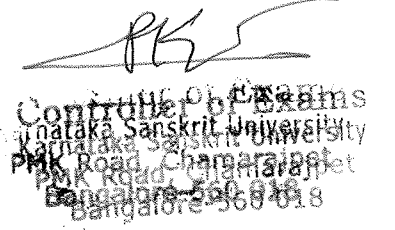 Controller of Exams
Karnataka Sanskrit University
PMK Road, Chamarajpet
Bangalore-560 018